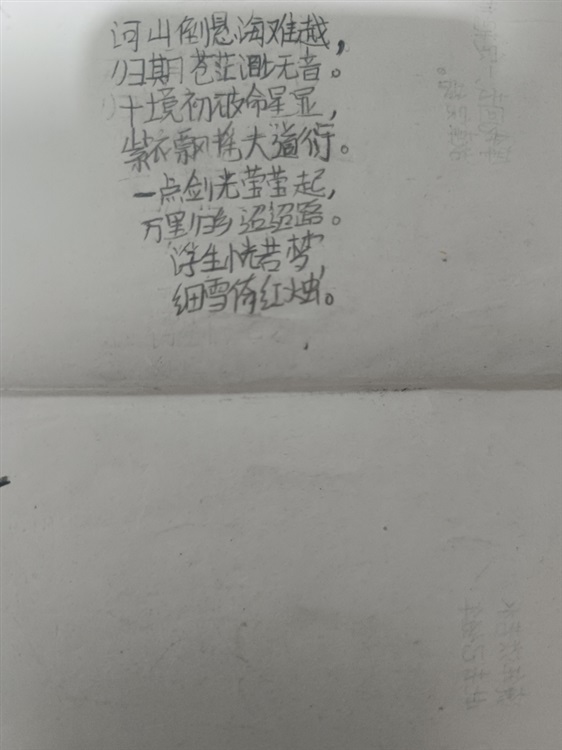 河山倒悬海难越，
归期苍茫渺无音。
十境初破命星显，
紫衣飘摇大道衍。
一点剑光莹莹起，
万里归乡迢迢路。
浮生恍若梦，
细雪倚红烛。